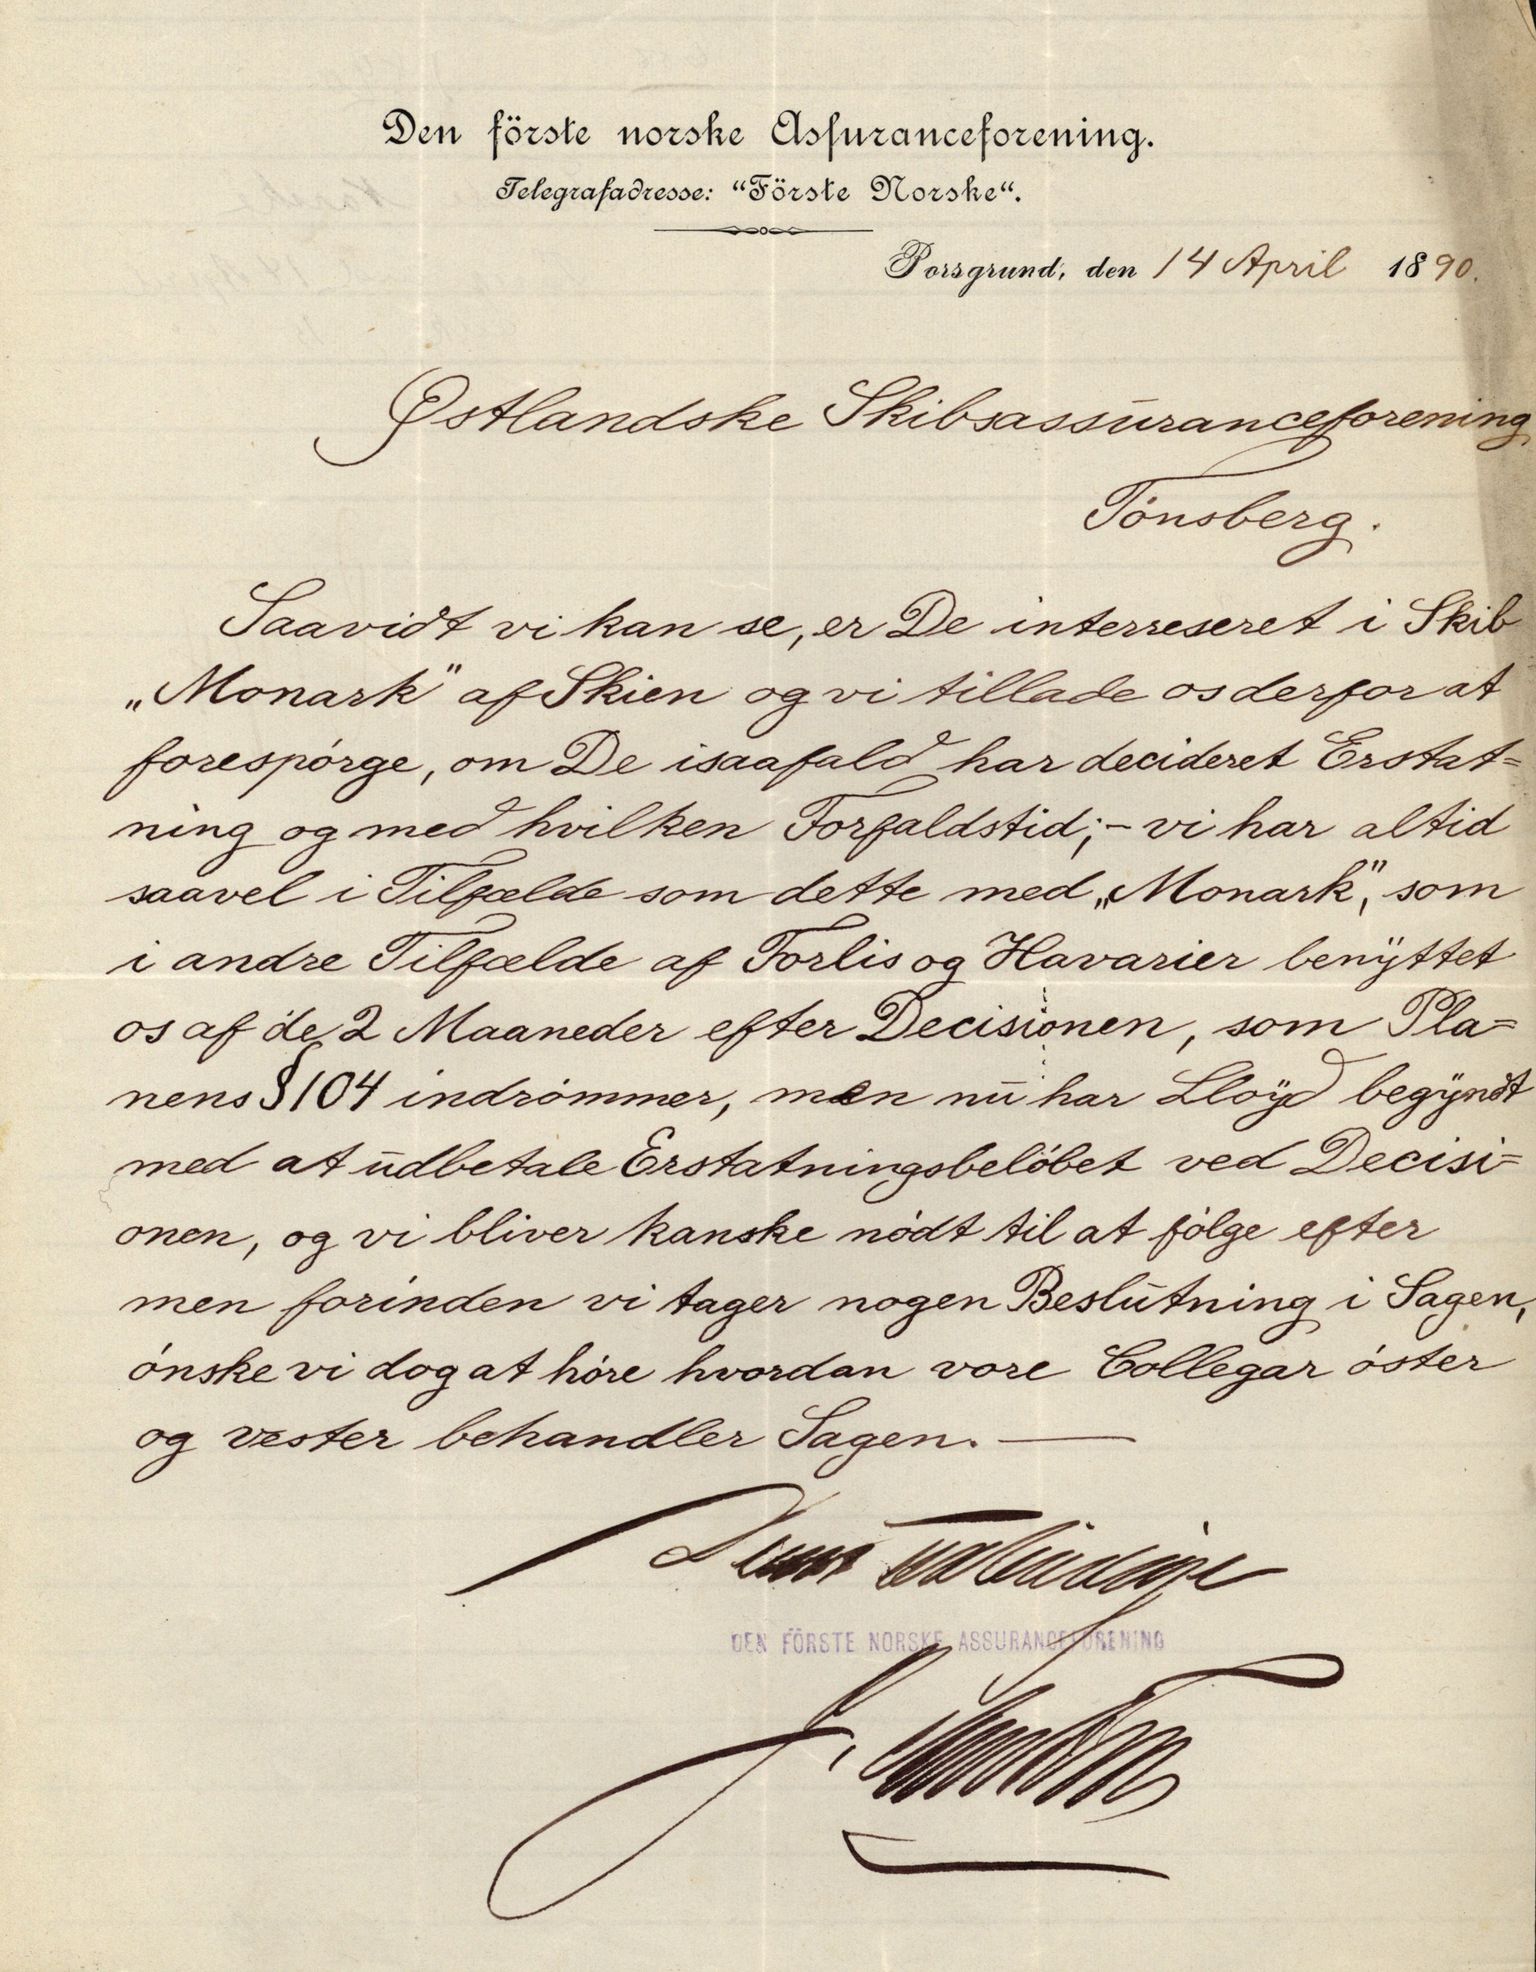 Den förste norske Assuranceforening.
Telegrafadresse: "Förste Norske".
Porsgrund, den 14 April 1890.
Østlandske Skibsassuranceforening
Tönsberg.
Saavidt vi kan se, er De interreseret i Skib
„Monark" af Skien og vi tillade os derfor at
forespörge, om De isaafald har decideret Erstat=
ning og med hvilken Forfaldstid; - vi har altid
saavel i Tilfælde som dette med „Monark", som
i andre Tilfælde af Forlis og Havarier benyttet
os af de 2 Maaneder efter Decisionen, som Pla=
nens § 104 indrömmer, men nu har Lloyd begyndt
med at udbetale Erstatningsbelöbet ved Decisi=
onen, og vi bliver kanske nödt til at fölge efter
men forinden vi tager nogen Beslutning i Sagen,
önske vi dog at höre hvordan vore Collegar öster
og vester behandler Sagen. —
DEN FÖRSTE NORSKE ASSURANCEFORENING